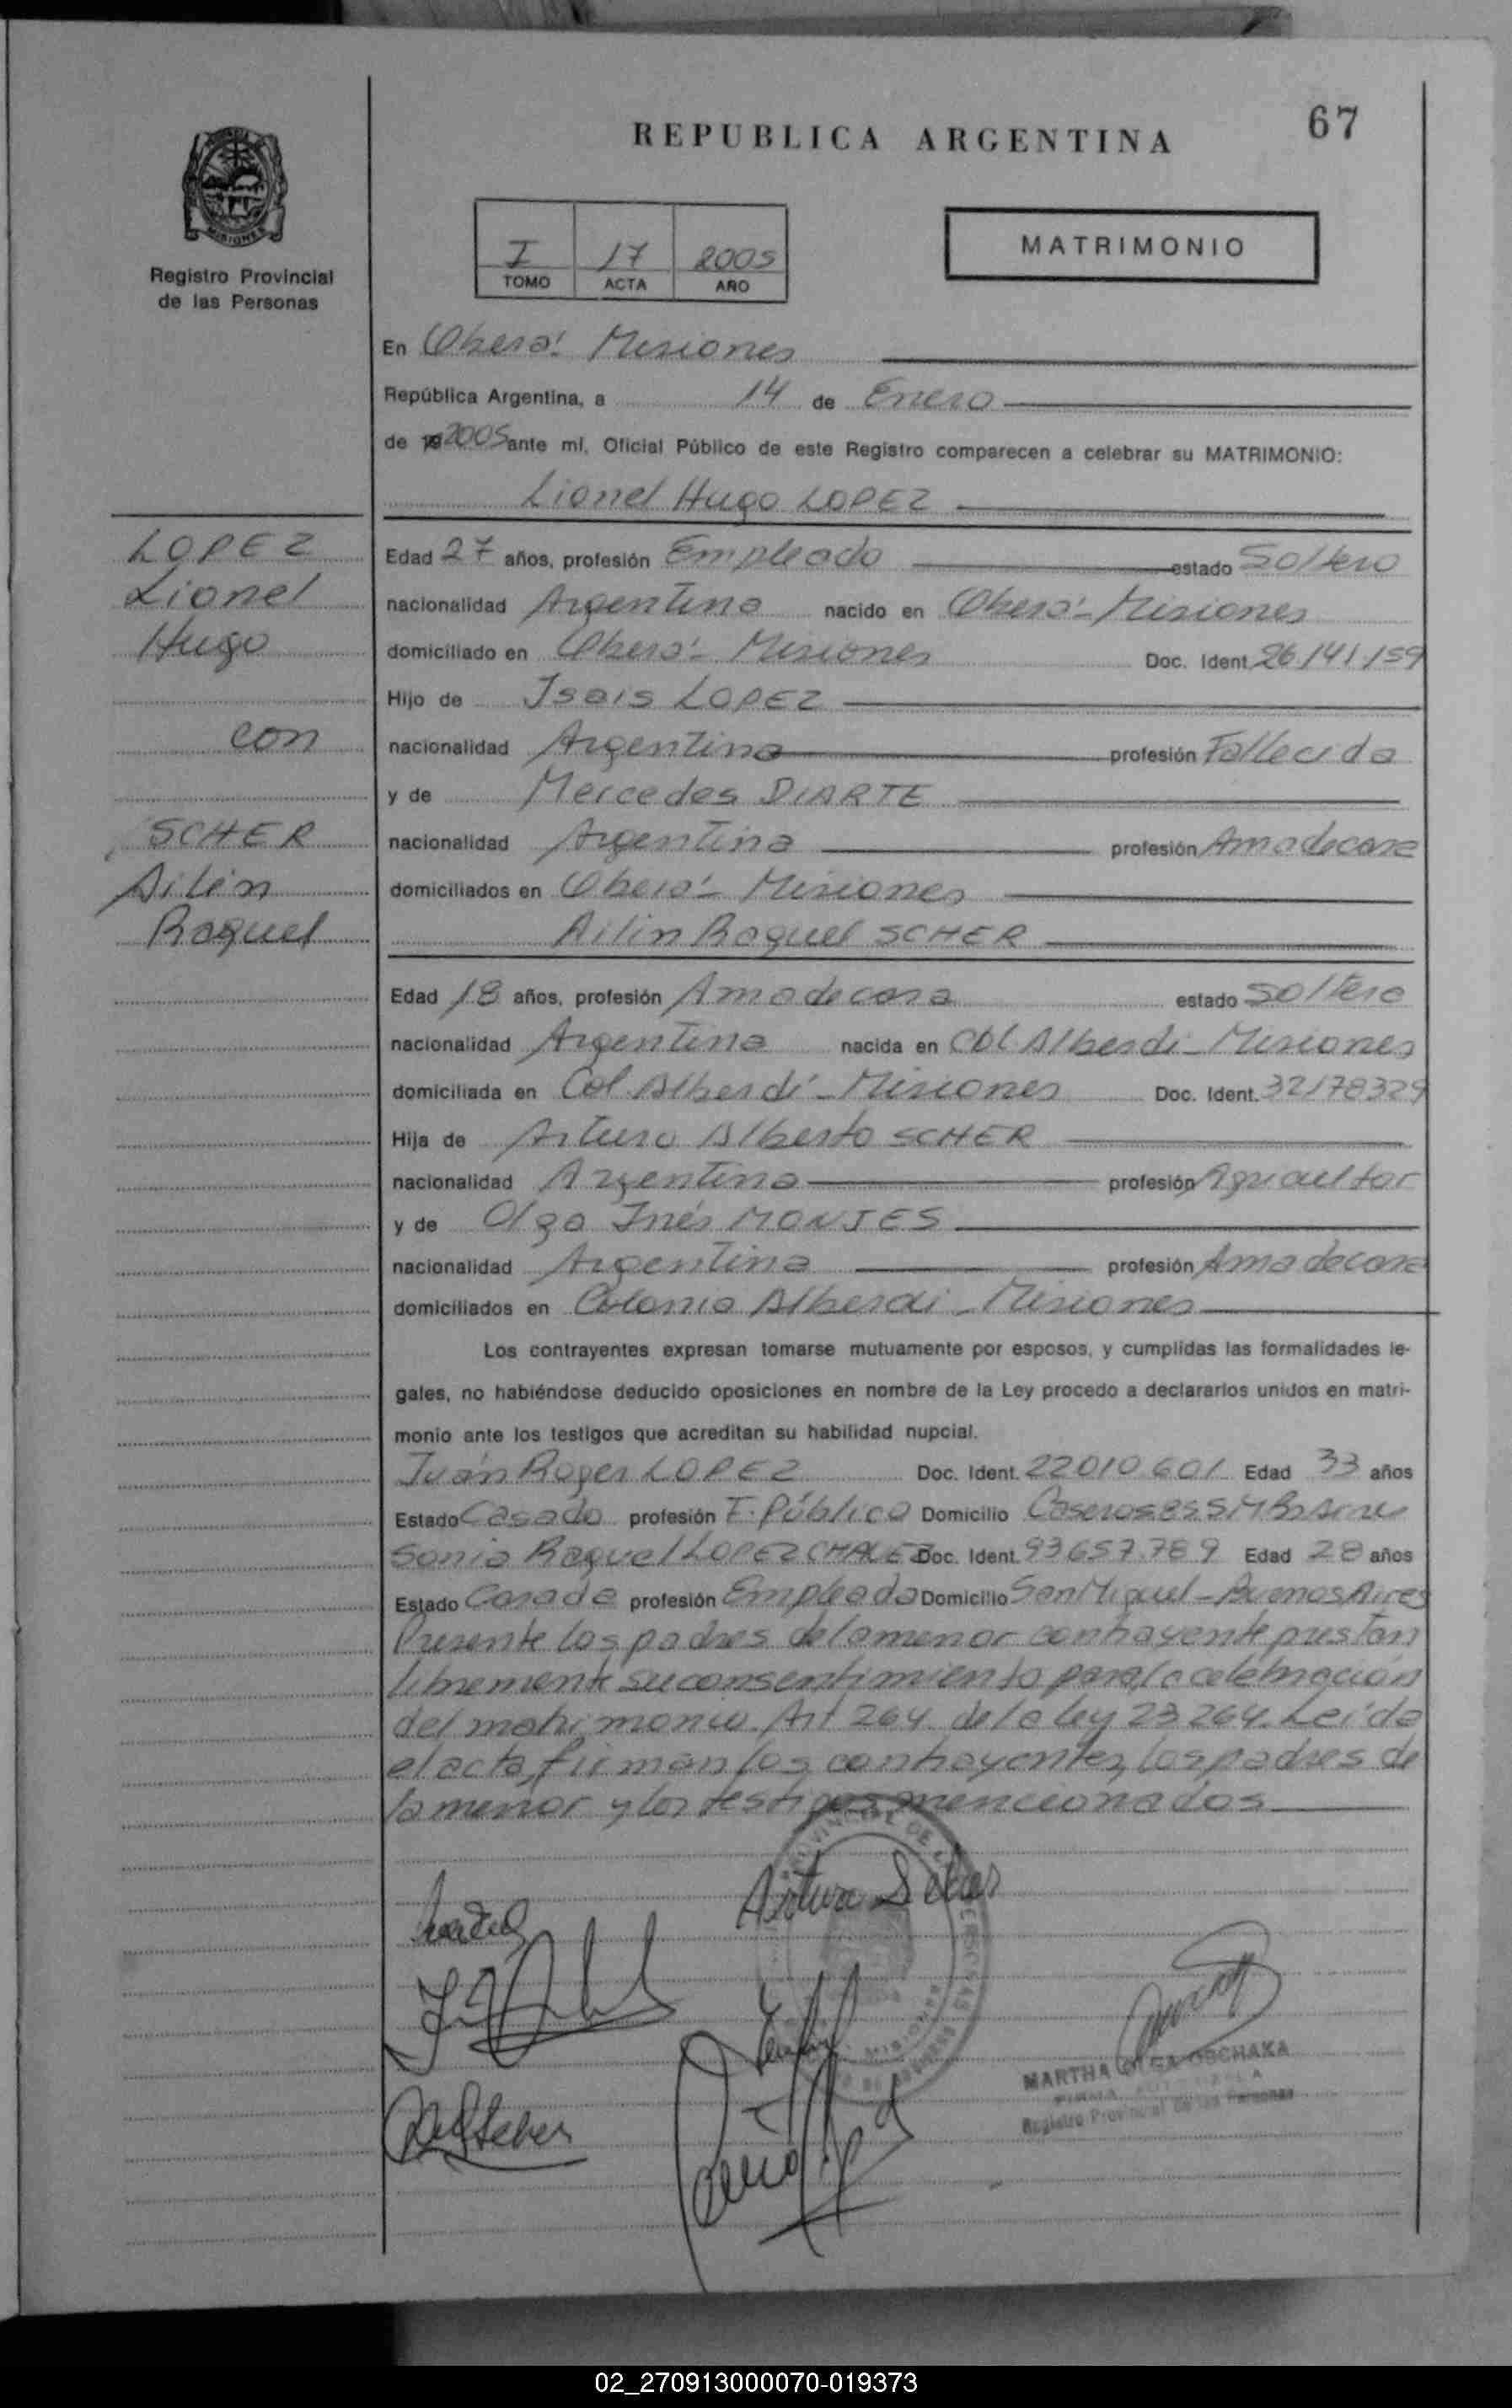 67
REPUBLICA ARGENTINA
MISIONES
Registro Provincial
de las Personas
I 17 2005
TOMO ACTA AÑO
MATRIMONIO
En Oberá Misiones
República Argentina, a 14 de Enero
de 19 2005 ante mí, Oficial Público de este Registro comparecen a celebrar su MATRIMONIO:
Lionel Hugo LOPEZ
LOPEZ
Lionel
Hugo
con
SCHER
Ailin
Raquel
Edad 27 años, profesión Empleado estado Soltero
nacionalidad Argentina nacido en Oberá - Misiones
domiciliado en Oberá - Misiones Doc. Ident. 26.141.159
Hijo de Isais LOPEZ
nacionalidad Argentina profesión Fallecida
y de Mercedes DIARTE
nacionalidad Argentina profesión Amadecasa
domiciliados en Oberá - Misiones
Ailin Raquel SCHER
Edad 18 años, profesión Amadecasa estado Soltera
nacionalidad Argentina nacida en Col Alberdi - Misiones
domiciliada en Col. Alberdi - Misiones Doc. Ident. 32178329
Hija de Arturo Alberto SCHER
nacionalidad Argentina profesión Agricultor
y de Olga Inés MONJES
nacionalidad Argentina profesión Amadecasa
domiciliados en Colonia Alberdi - Misiones
Los contrayentes expresan tomarse mutuamente por esposos, y cumplidas las formalidades le-
gales, no habiéndose deducido oposiciones en nombre de la Ley procedo a declararlos unidos en matri-
monio ante los testigos que acreditan su habilidad nupcial.
Juán Roger LOPEZ Doc. Ident. 22010601 Edad 33 años
Estado Casado profesión E. Público Domicilio Caseros
Sonia Raquel LOPEZ CHAVEZ Doc. Ident. 93657.789 Edad 28 años
Estado Casada profesión Empleada Domicilio San Miguel - Buenos Aires
Presente los padres de la menor contrayente prestan
libremente su consentimiento para la celebración
del matrimonio. Art 264. de la ley 23264. Leída
el acta, firman los contrayentes, los padres de
la menor y los testigos mencionados
Arturo Scher
MARTHA OLGA OBCHAKA
FIRMA AUTORIZADA
Registro Provincial de las Personas
02_270913000070-019373